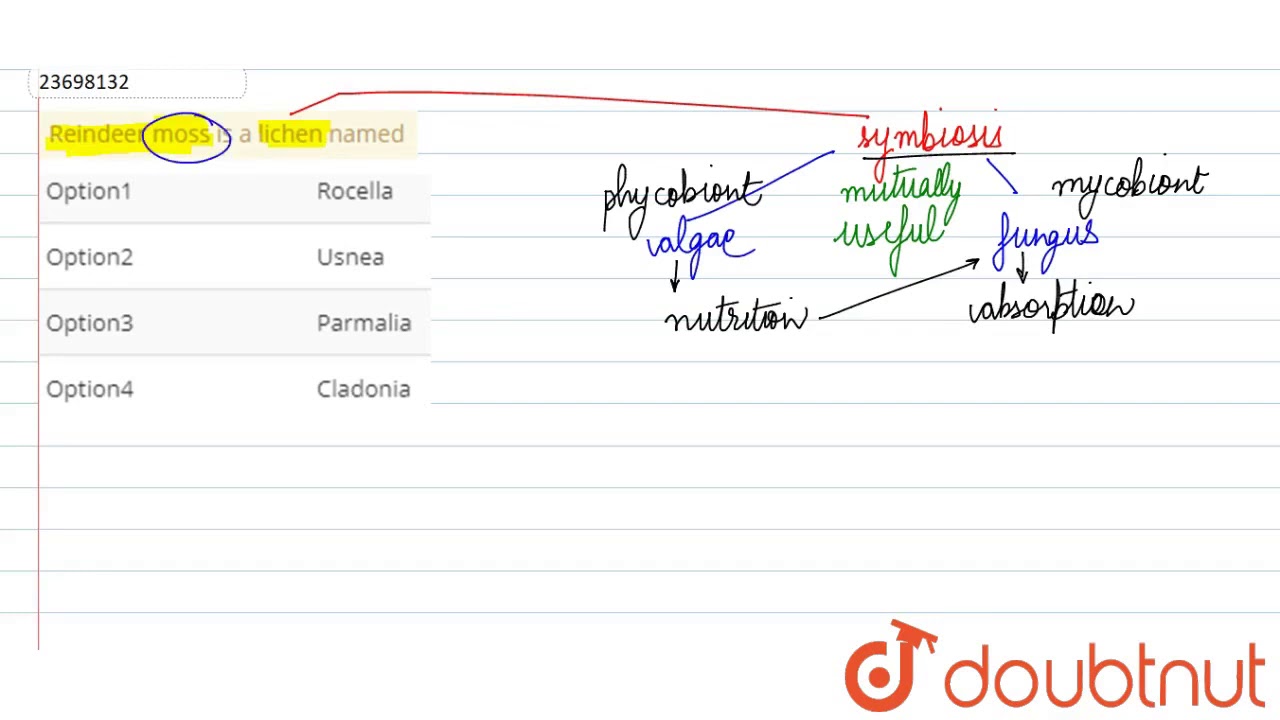 23698132
Reindeer moss is a lichen named
Option1 Rocella
Option2 Usnea
Option3 Parmalia
Option4 Cladonia
symbiosis
phycobiont
mutually
useful
mycobiont
algae
fungus
nutrition
absorption
doubtnut